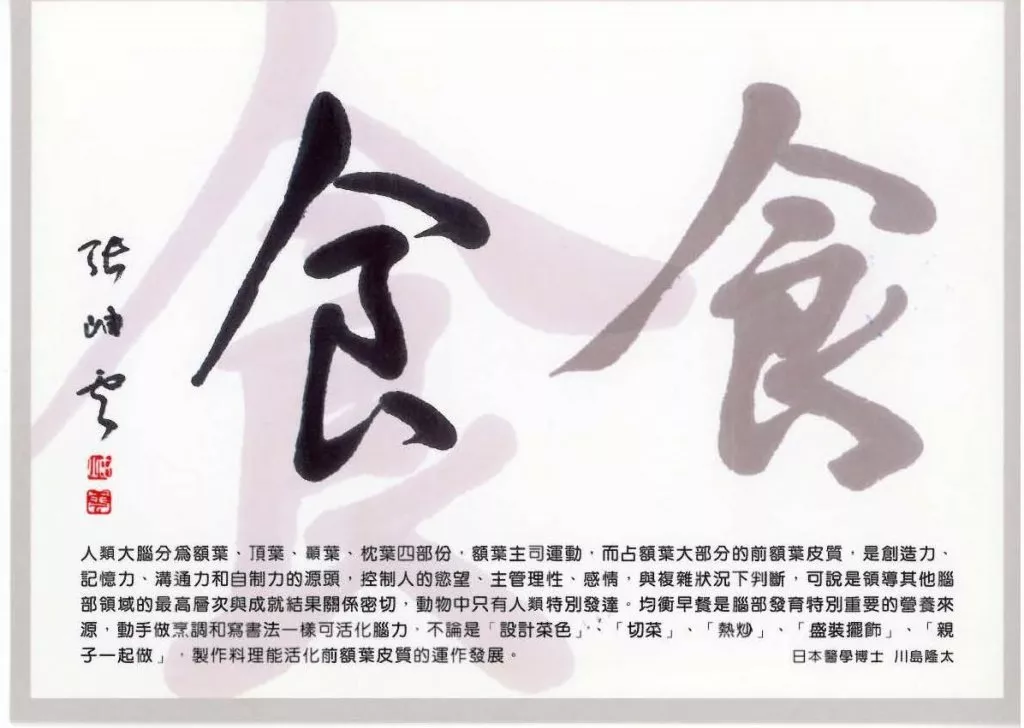 食
食
張岫雲
人類大腦分為額葉、頂葉、顳葉、枕葉四部份，額葉主司運動，而占額葉大部分的前額葉皮質，是創造力、
記憶力、溝通力和自制力的源頭，控制人的慾望、主管理性、感情，與複雜狀況下判斷，可說是領導其他腦
部領域的最高層次與成就結果關係密切，動物中只有人類特別發達。均衡早餐是腦部發育特別重要的營養來
源，動手做烹調和寫書法一樣可活化腦力，不論是「設計菜色」、「切菜」、「熱炒」、「盛裝擺飾」、「親
子一起做」，製作料理能活化前額葉皮質的運作發展。
日本醫學博士 川島隆太